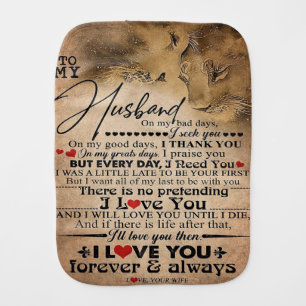 TO
MY
Husband
On my bad days,
I seek you
On my good days, I THANK YOU
In my greats days, I praise you
BUT EVERY DAY, I Need YOU
I WAS A LITTLE LATE TO BE YOUR FIRST
But I want all of my last to be with you
There is no pretending
I Love You
AND I WILL LOVE YOU UNTIL I DIE,
And if there is life after that,
I'll love you then.
I LOVE YOU
forever & always
LOVE, YOUR WIFE